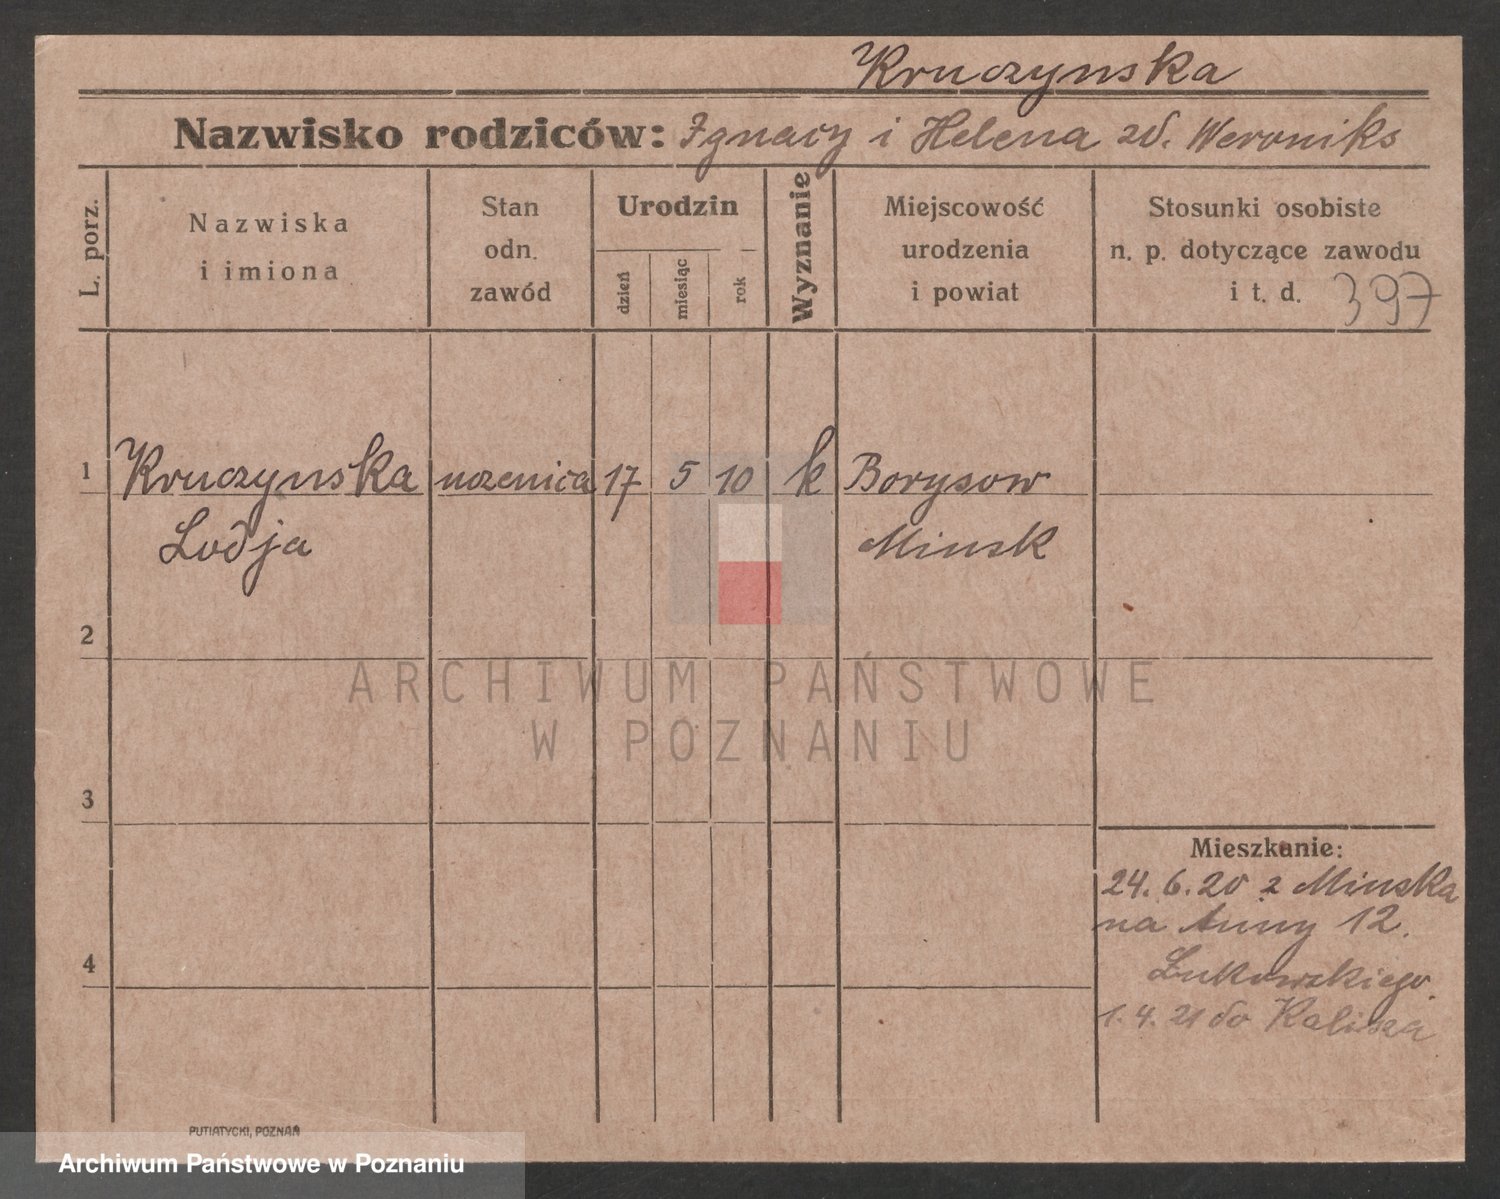 Kruczynska
Nazwisko rodziców: Ignacy i Helena zd. Weroniks
L. porz.
Nazwiska
i imiona
Stan
odn.
zawód
Urodzin
dzień
miesiąc
rok
Wyznanie
Miejscowość
urodzenia
i powiat
Stosunki osobiste
n. p. dotyczące zawodu
i t. d.
397
1 Kruczynska uczenica 17 5 10 k Borysow
Lodja Minsk
2
ARCHIWUM PAŃSTWOWE
W POZNANIU
3
Mieszkanie:
24. 6. 20 z Minska
na Anny 12.
4
Łukowskiego.
1. 4. 21 do Kalisza
PUTIATYCKI, POZNAŃ
Archiwum Państwowe w Poznaniu